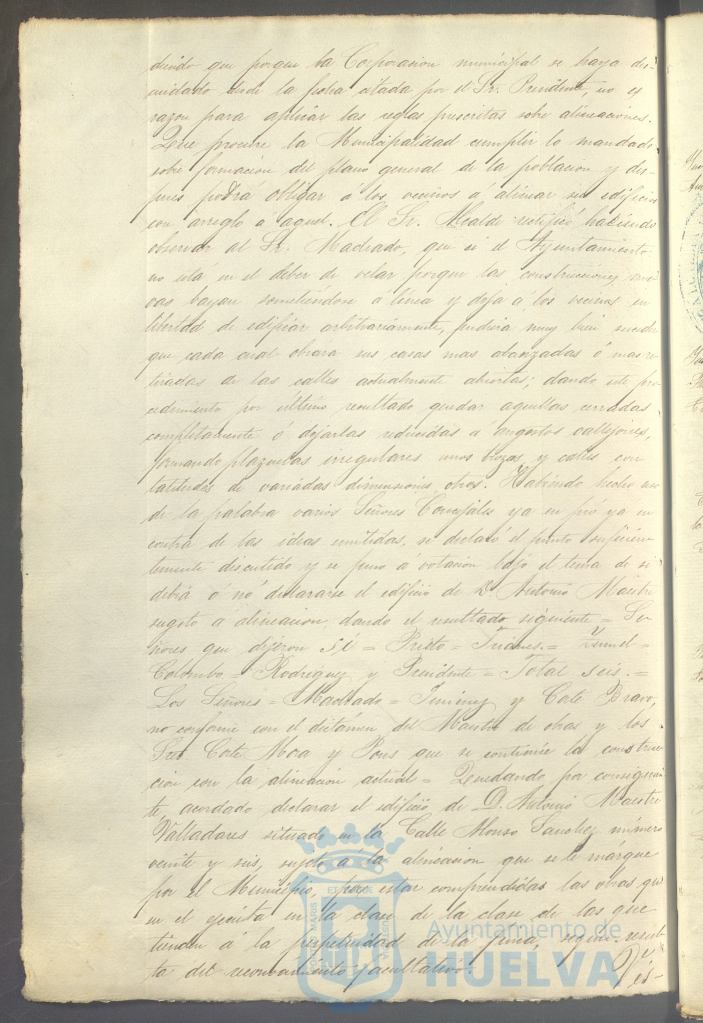 diendo que porque la Corporacion municipal se haya des-
cuidado desde la fecha citada por el Sr. Presidente, no es
razon para aplicar las reglas prescritas sobre alineaciones.
Que procure la Municipalidad cumplir lo mandado
sobre formacion del plano general de la poblacion y des-
pues podrá obligar á los vecinos á alinear sus edificios
con arreglo a aquel. El Sr. Alcalde rectificó haciendo
observar al Sr. Machado, que si el Ayuntamiento
no está en el deber de velar porque las construcciones nue-
vas vayan sometiendose á linea y deja á los vecinos en
libertad de edificar arbitrariamente, pudiera muy bien suceder
que cada cual obrára sus casas mas abanzadas ó mas re-
tiradas de las calles actualmente abiertas; dando este pro-
cedimiento por ultimo resultado quedar aquellas cerradas
completamente ó dejarlas reducidas a angostos callejones,
formando plazuelas irregulares unos trozos y calles con
latitudes de variadas dimensiones otros. Habiendo hecho uso
de la palabra varios Señores Concejales ya en pró ya en
contra de las ideas emitidas, se declaró el punto suficien-
temente discutido y se puso á votacion bajo el tema de si
debia ó nó declararse el edificio de D. Antonio Maestre
sugeto a alineacion, dando el resultado siguiente = Se-
ñores que dijeron sí = Prieto = =
Colombo = Rodriguez y Presidente = Total seis. =
Los Señores = Machado = Jimenez y Corte Bravo,
no conforme con el dictámen del Maestro de obras y los
Sres Corte Mora y Pons que se continúe la construc-
cion con la alineacion actual = Quedando por consiguien-
te, acordado declarar el edificio de D. Antonio Maestre
Valladares situado en la Calle Alonso Sanchez número
veinte y seis, sujeto á la alineacion que se le márque
por el Municipio, por estar comprendidas las obras que
en el ejecuta en la clase de la clase de las que
tienden á la perpetuidad de la finca, segun result-
ta del reconocimiento facultativo.
Ayuntamiento de
HUELVA